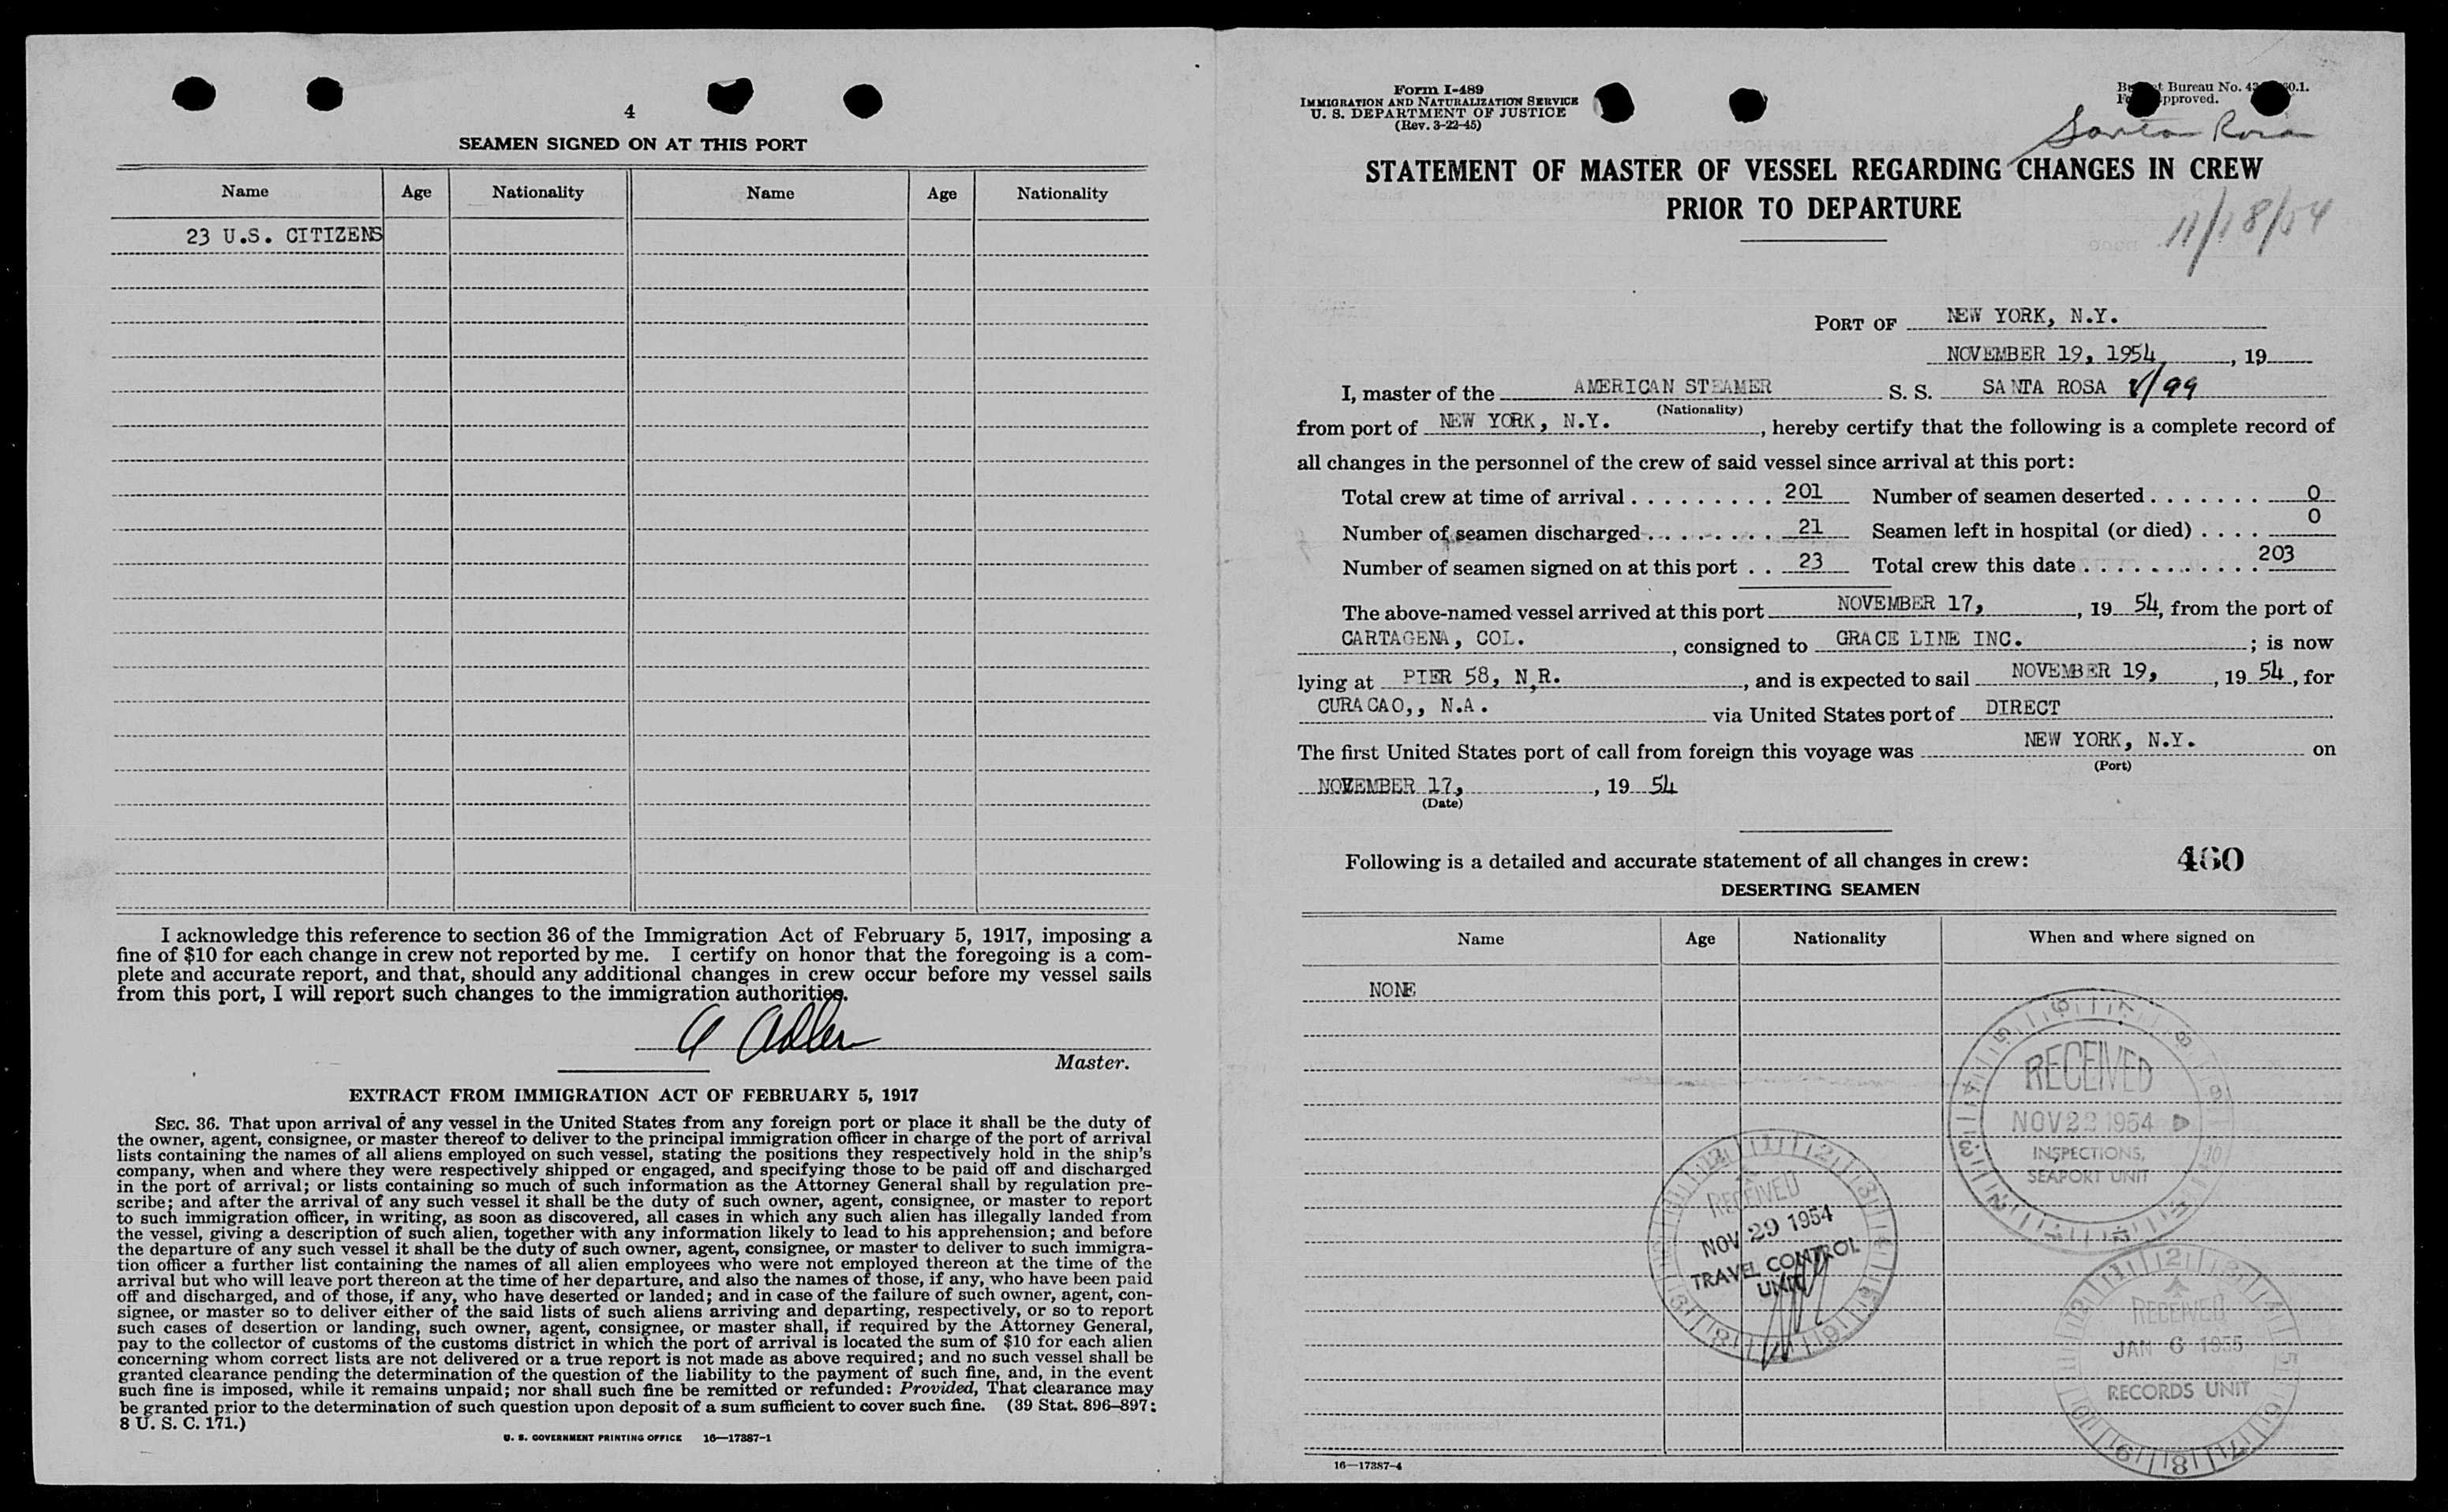 4
SEAMEN SIGNED ON AT THIS PORT
Name Age Nationality Name Age Nationality
23 U.S. CITIZENS
I acknowledge this reference to section 36 of the Immigration Act of February 5, 1917, imposing a
fine of $10 for each change in crew not reported by me. I certify on honor that the foregoing is a com-
plete and accurate report, and that, should any additional changes in crew occur before my vessel sails
from this port, I will report such changes to the immigration authorities.
A Adler
Master.
EXTRACT FROM IMMIGRATION ACT OF FEBRUARY 5, 1917
SEC. 36. That upon arrival of any vessel in the United States from any foreign port or place it shall be the duty of
the owner, agent, consignee, or master thereof to deliver to the principal immigration officer in charge of the port of arrival
lists containing the names of all aliens employed on such vessel, stating the positions they respectively hold in the ship's
company, when and where they were respectively shipped or engaged, and specifying those to be paid off and discharged
in the port of arrival; or lists containing so much of such information as the Attorney General shall by regulation pre-
scribe; and after the arrival of any such vessel it shall be the duty of such owner, agent, consignee, or master to report
to such immigration officer, in writing, as soon as discovered, all cases in which any such alien has illegally landed from
the vessel, giving a description of such alien, together with any information likely to lead to his apprehension; and before
the departure of any such vessel it shall be the duty of such owner, agent, consignee, or master to deliver to such immigra-
tion officer a further list containing the names of all alien employees who were not employed thereon at the time of the
arrival but who will leave port thereon at the time of her departure, and also the names of those, if any, who have been paid
off and discharged, and of those, if any, who have deserted or landed; and in case of the failure of such owner, agent, con-
signee, or master so to deliver either of the said lists of such aliens arriving and departing, respectively, or so to report
such cases of desertion or landing, such owner, agent, consignee, or master shall, if required by the Attorney General,
pay to the collector of customs of the customs district in which the port of arrival is located the sum of $10 for each alien
concerning whom correct lists are not delivered or a true report is not made as above required; and no such vessel shall be
granted clearance pending the determination of the question of the liability to the payment of such fine, and, in the event
such fine is imposed, while it remains unpaid; nor shall such fine be remitted or refunded: Provided, That clearance may
be granted prior to the determination of such question upon deposit of a sum sufficient to cover such fine. (39 Stat. 896–897;
8 U. S. C. 171.)
U. S. GOVERNMENT PRINTING OFFICE 16—17387-1
Form I-489
IMMIGRATION AND NATURALIZATION SERVICE
U. S. DEPARTMENT OF JUSTICE
(Rev. 3-22-45)
Bureau No.
Santa Rosa
STATEMENT OF MASTER OF VESSEL REGARDING CHANGES IN CREW
PRIOR TO DEPARTURE
11/18/54
PORT OF NEW YORK, N.Y.
NOVEMBER 19, 1954, 19
I, master of the AMERICAN STEAMER S. S. SANTA ROSA V/99
(Nationality)
from port of NEW YORK, N.Y., hereby certify that the following is a complete record of
all changes in the personnel of the crew of said vessel since arrival at this port:
Total crew at time of arrival . . . . . . . . . 201 Number of seamen deserted . . . . . . . 0
Number of seamen discharged . . . . . . . . 21 Seamen left in hospital (or died) . . . . 0
Number of seamen signed on at this port . . 23 Total crew this date . . . . . . . . . . . . 203
The above-named vessel arrived at this port NOVEMBER 17, , 19 54, from the port of
CARTAGENA, COL. , consigned to GRACE LINE INC. ; is now
lying at PIER 58, N.R. , and is expected to sail NOVEMBER 19, , 19 54, for
CURACAO,, N.A. via United States port of DIRECT
The first United States port of call from foreign this voyage was NEW YORK, N.Y. on
(Port)
NOVEMBER 17, , 19 54
(Date)
Following is a detailed and accurate statement of all changes in crew: 460
DESERTING SEAMEN
Name Age Nationality When and where signed on
NONE
RECEIVED
NOV 22 1954
INSPECTIONS,
SEAPORT UNIT
RECEIVED
NOV 29 1954
TRAVEL CONTROL
UNIT
RECEIVED
JAN 6 1955
RECORDS UNIT
16—17387-4